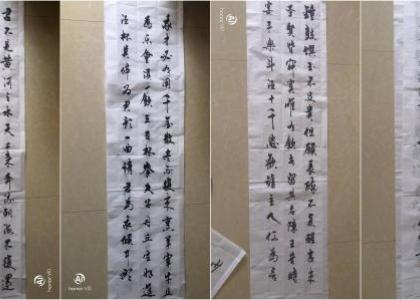 君不見黃河之水天上來奔流到海不復還
我才必有用千金散盡還復來烹羊宰牛且
為樂會須一飲三百杯岑夫子丹丘生將進
酒杯莫停與君歌一曲請君為我傾耳聽
鐘鼓饌玉不足貴但願長醉不復醒古來
聖賢皆寂寞惟有飲者留其名陳王昔時
宴平樂斗酒十千恣歡謔主人何為言
honor V10
honor V10
honor V10